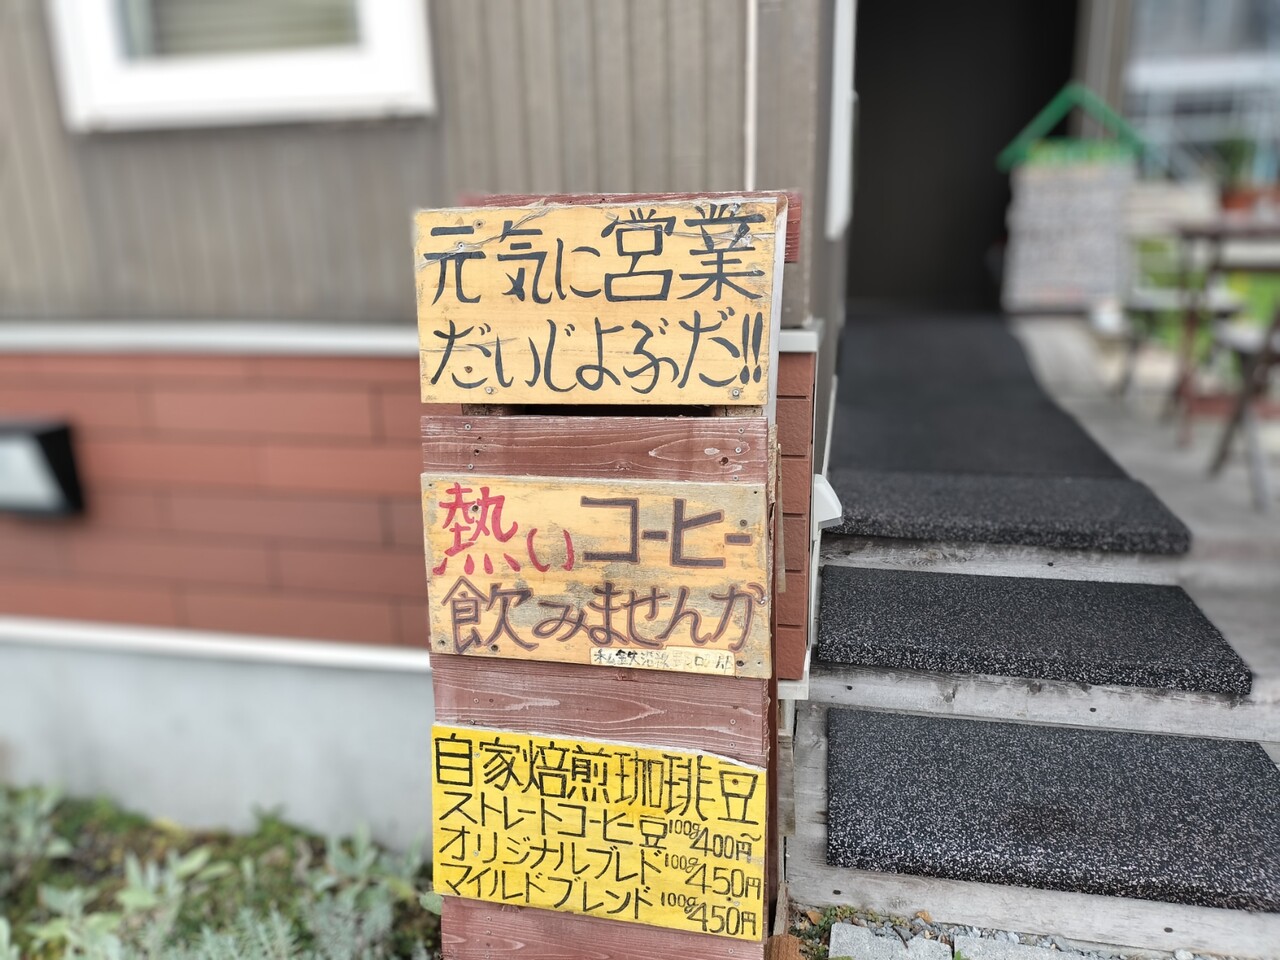 元気に営業
だいじよぶだ!!
熱いコーヒー
飲みませんか
自家焙煎珈琲豆
ストレートコーヒー豆100g400円~
オリジナルブレド100g450円
マイルドブレンド100g450円